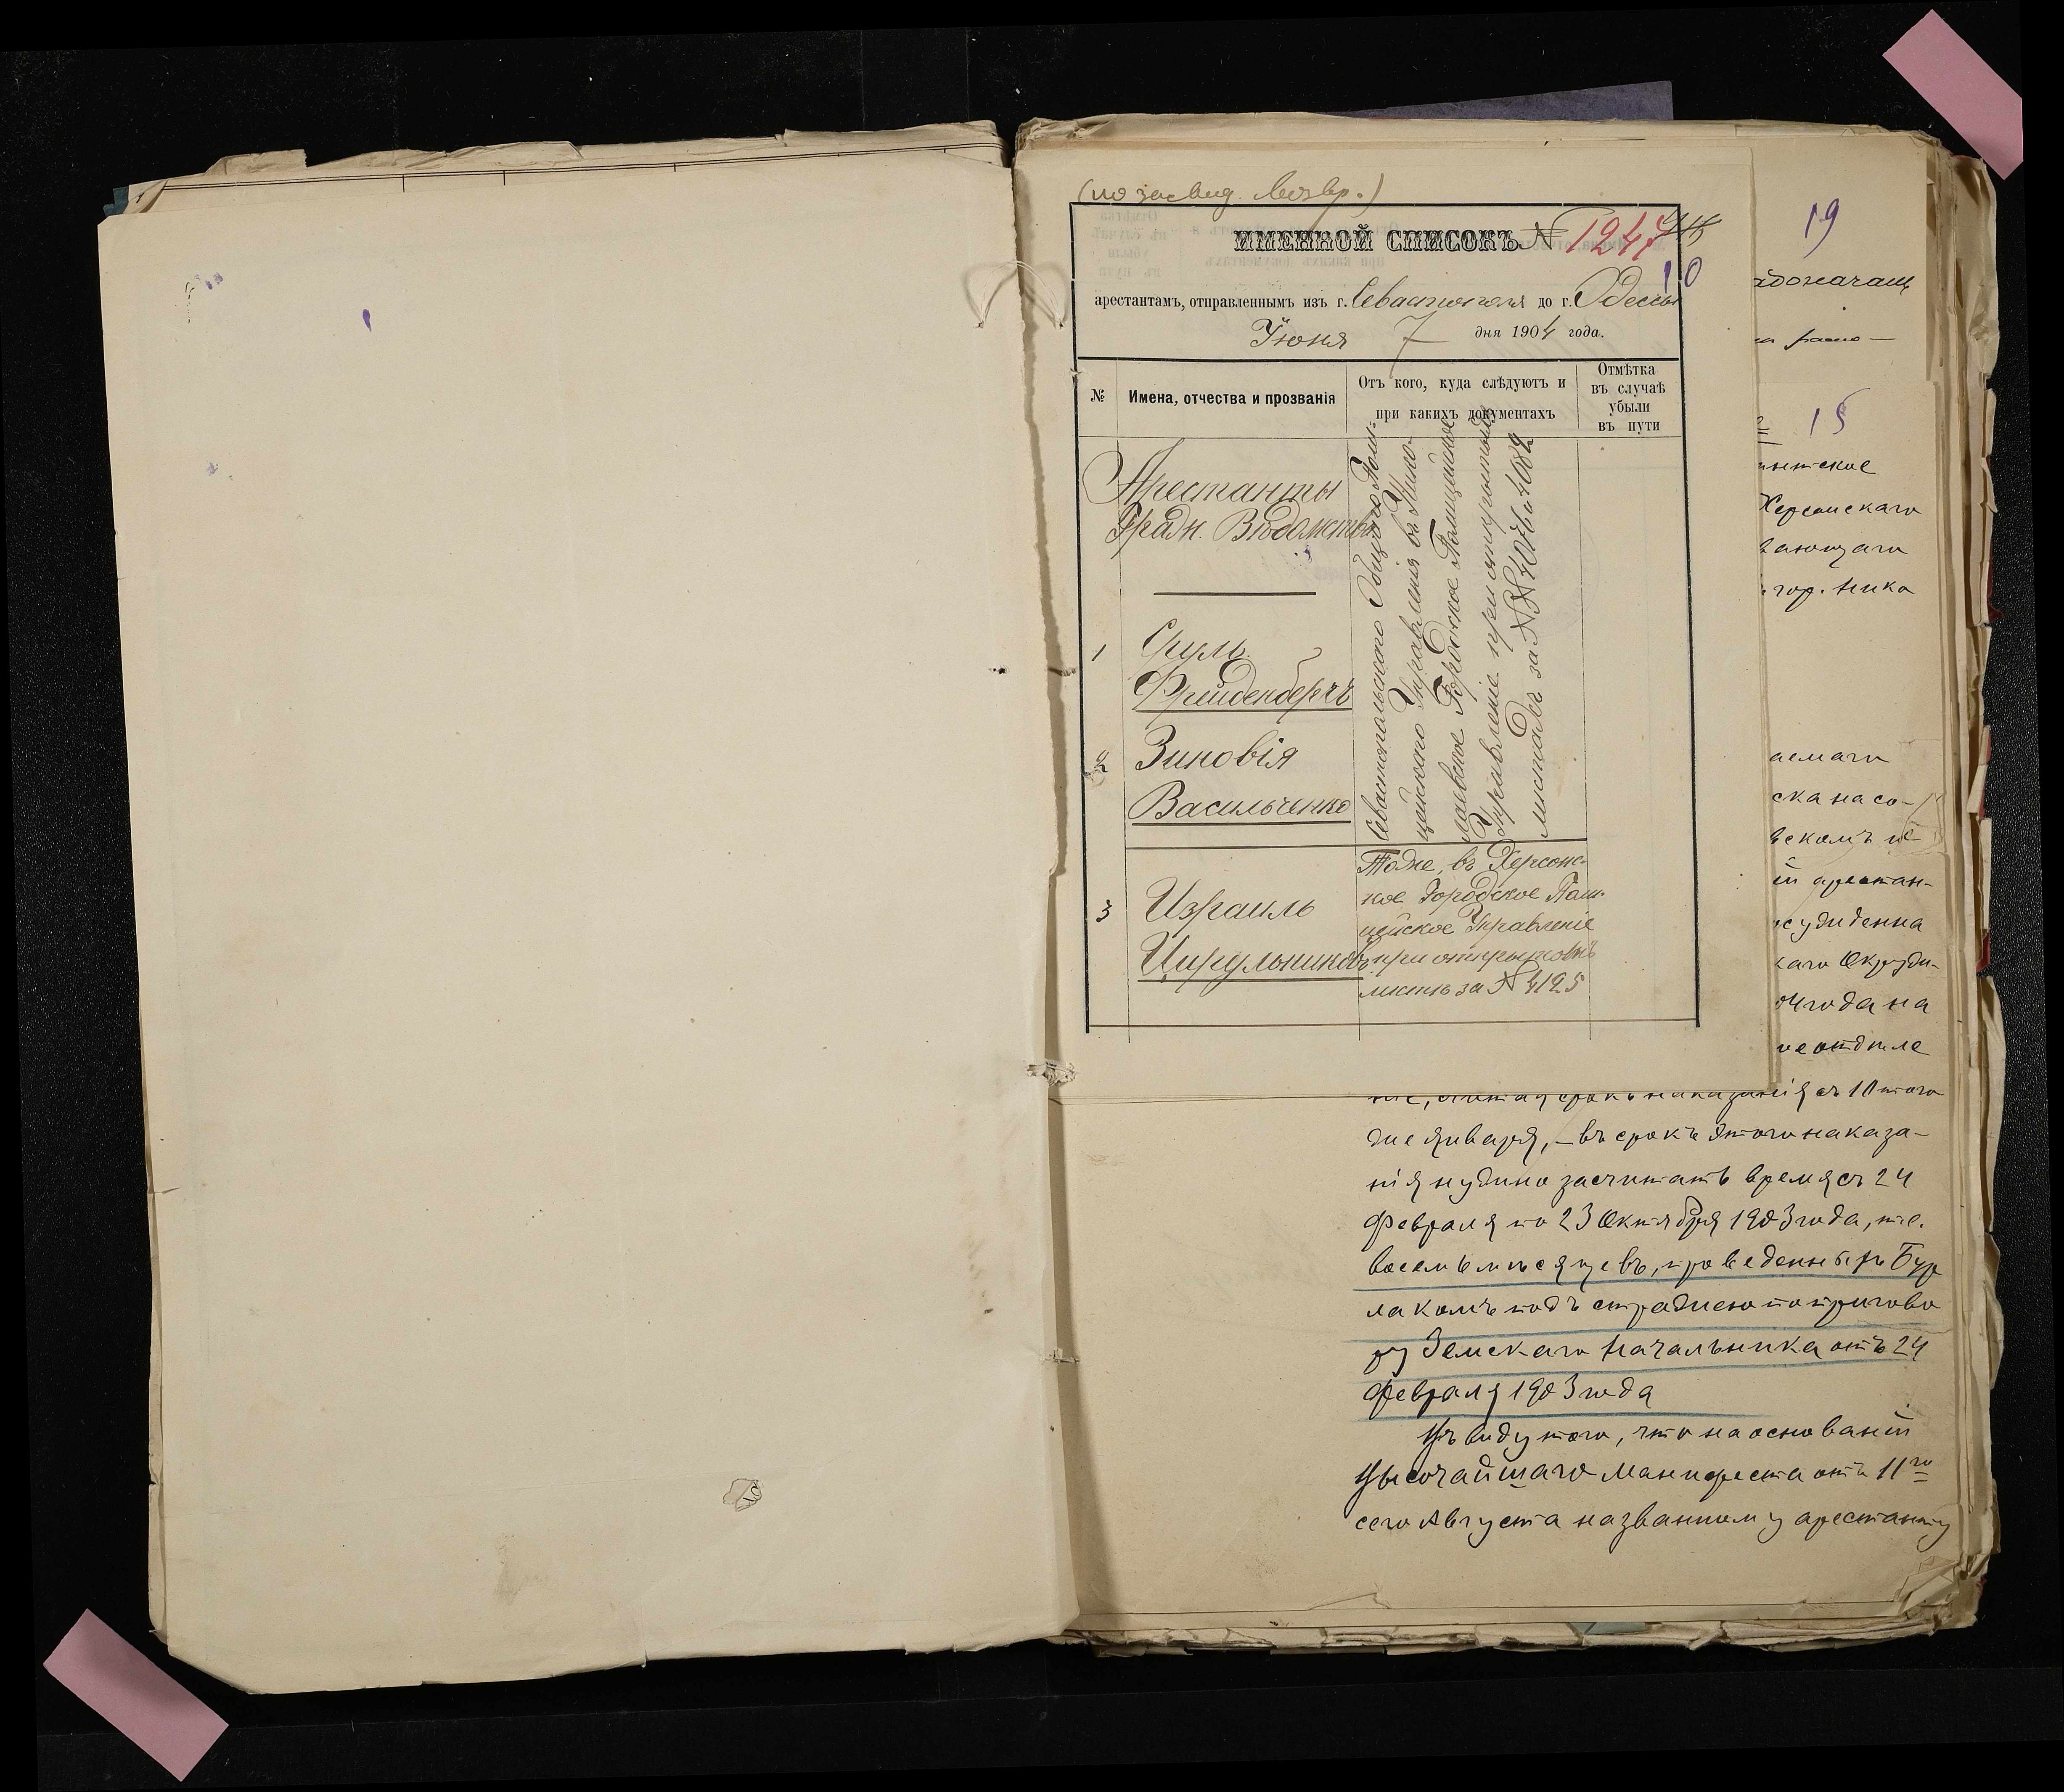 (по засвид.
ИМЕННОЙ СПИСОКЪ № 1247
10
арестантамъ, отправленнымъ изъ г. Севастополя до г. Одессы
Іюня 7 дня 1904 года.
№
Имена, отчества и прозванія
Отъ кого, куда слѣдуютъ и
при какихъ документахъ
Отмѣтка
въ случаѣ
убыли
въ пути
Арестанты
Гражд. Вѣдомства
1 Сруль
Фрейденбергъ
2 Зиновія
Васильченко
Севастопольскаго Общаго Поли-
цейскаго Управленія въ Нико-
лаевское Городское Полицейское
Управленіе при открытыхъ
листахъ за №№ 4076 и 4082
3 Израиль
Цирульниковъ
Тоже, въ Херсонс-
кое Городское Поли-
цейское Управленіе
при открытомъ
листѣ за № 4125
19
15
Херсонскаго
вающаго
гор. Ника
аемаго
ска на со-
й арестан-
суждена
каго Окруж-
года на
отдѣле
ніе, считая срокъ наказанія съ 10 того
же Января, – въ срокъ этого наказа-
нія нужно засчитать время съ 24
Февраля по 23 Октября 1903 года, т.е.
восемь мѣсяцевъ, проведенныхъ Бур
лакомъ подъ стражею по пригово
ру Земскаго Начальника отъ 24
Февраля 1903 года
Въ виду того, что на основаніи
Высочайшаго Манифеста отъ 11го
сего Августа названному арестанту